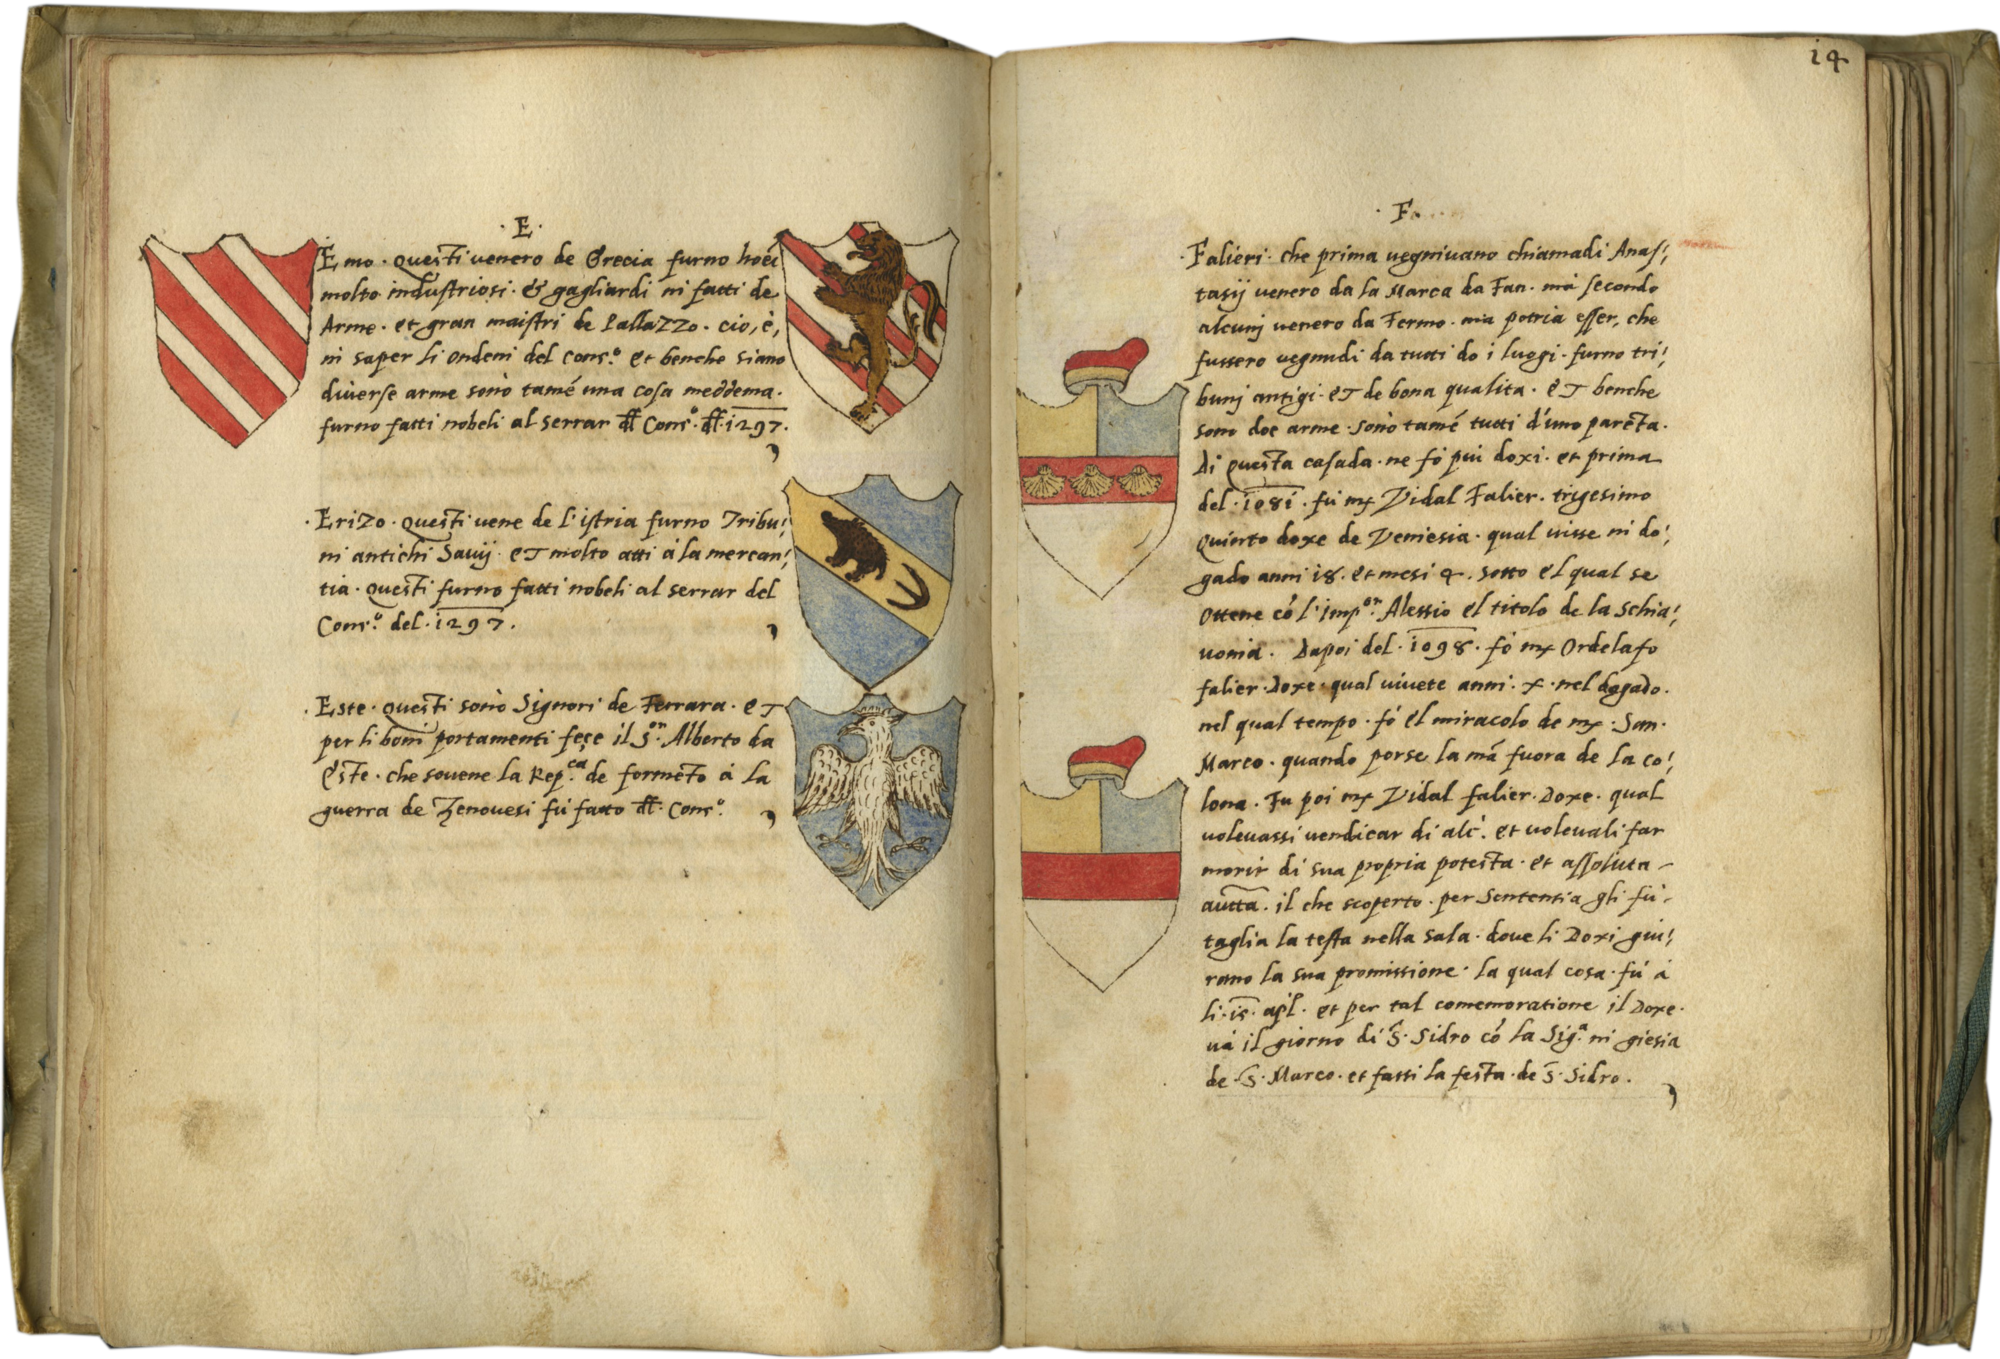 · E ·
Emo · Questi venero de Grecia furno hoẽi
molto industriosi · & gagliardi ni fatti de
Arme · et gran maistri de PallaZZo · cio, è,
ni saper li ordeni del Cons.º et benche siano
diverse arme sonò tamẽ una cosa meddema ·
furno fatti nobeli al serrar dłł Cons.º dłł · 1297 ·
· EriZo · Questi vene de l'istria furno Tribu¦
ni antichi Savij · et molto atti á la mercan¦
tia · Questi furno fatti nobeli al serrar del
Cons.º del · 1297 ·
· Este · questi sonò Signori de Ferrara · et
per li boni portamenti feçe il S.ºⁿ Alberto da
Este · che sovene la Rep.ᶜᵃ de formẽto á la
guerra de Zenovesi fú fatto dłł · Cons.º
14
· F ·
· Falieri · che prima vegnivano chiamadi Anas¦
tasij venero da la Marca da Fan · mà secondo
alcunj venero da Fermo · ma potria esser, che
fussero vegnudi da tutti do i luogi · furno tri¦
bunj antigi · et de bona qualita · et benche
sono doe arme · sonò tamẽ tutti d'uno parẽta ·
Di questa casada · ne fó piu doxi · et prima
del · 1081 · fú mʳ Vidal Falier · trigesimo
Quinto doxe de Veniesia · qual visse ni do¦
gado anni 18 · et mesi 4 · sotto el qual se
ottene cõ l'imp.ºʳ Alessio el titolo de la schia¦
vonia · Dapoi del · 1098 · fó mʳ Ordelafo
falier · Doxe · qual vivete anni · x · nel dogado ·
nel qual tempo · fó el miracolo de mʳ · San ·
Marco · quando porse la mã fuora de la co¦
lona · Fu poi mʳ Vidal falier · Doxe · qual
volevassi vendicar di alc̃ · et volevali far
morir di sua propria potesta · et assoluta -
autta · il che scoperto · per sententia gli fú -
taglia la testa nella sala · dove li Doxi giu¦
rano la sua promissione · la qual cosa · fú á
li · 15 · apl̃ · et per tal comemoratione il Doxe ·
vá il giorno di S̃ · Sidro cõ la Sig.ᵃ ni giesia
de · S̃ · Marco · et fassi la festa · de S̃ · Sidro ·